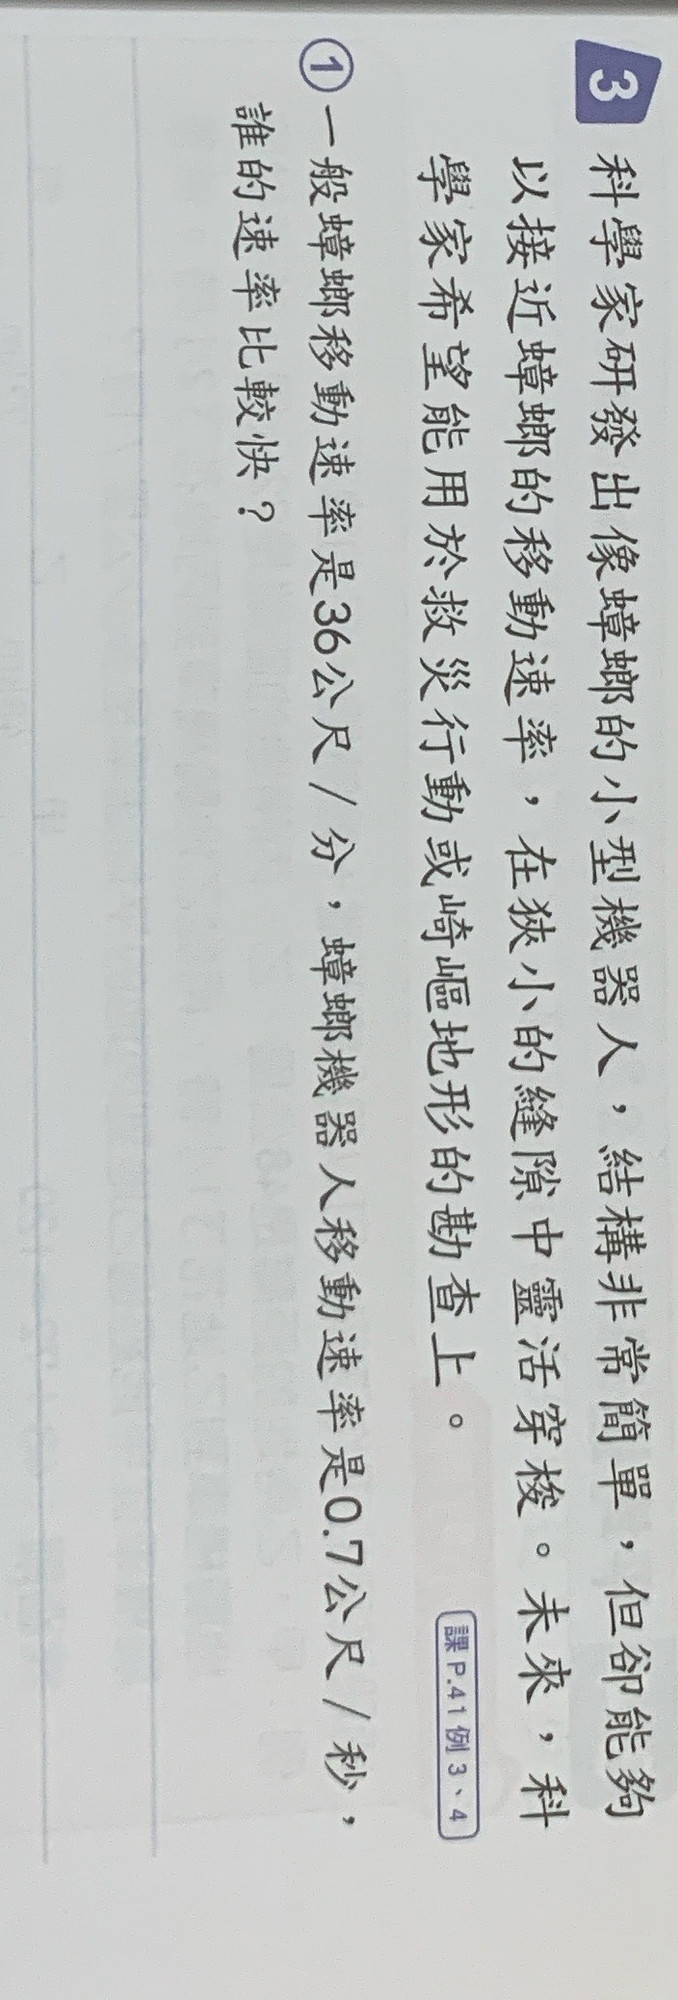 3 科學家研發出像蟑螂的小型機器人，結構非常簡單，但卻能夠
以接近蟑螂的移動速率，在狹小的縫隙中靈活穿梭。未來，科
學家希望能用於救災行動或崎嶇地形的勘查上。 課P.41例3、4
① 一般蟑螂移動速率是36公尺/分，蟑螂機器人移動速率是0.7公尺/秒，
誰的速率比較快？